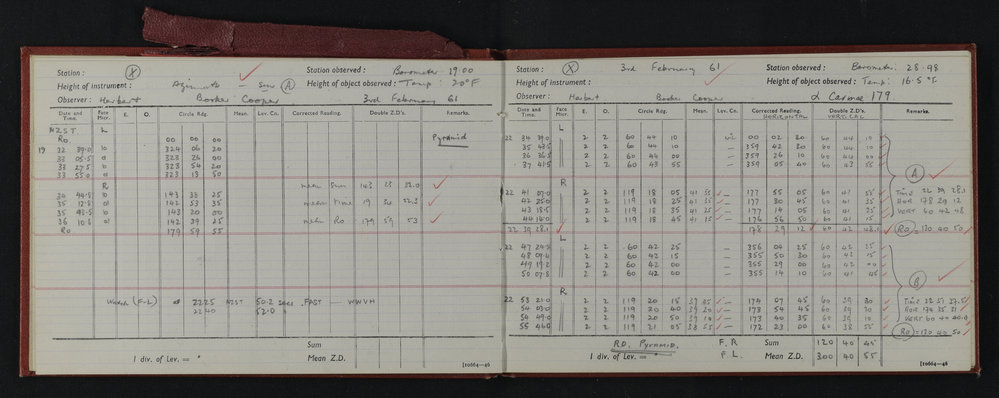 Station : X Station observed : Barometer 29.00
Height of instrument : Azimuth — Sun A Height of object observed : Temp: 20°F
Observer : Herbert Barker Cooper 3rd February 61
Date and Time. Face Micr. E. O. Circle Rdg. Mean. Lev. Cn. Corrected Reading. Double Z.D's. Remarks.
NZST L
Ro 00 00 00 Pyramid
19 32 39.0 324 06 20
33 05.5 323 26 00
33 27.5 323 54 20
33 55.0 323 13 50
R
34 49.8 143 33 25 mean Sun 143 23 22.0
35 12.8 142 53 35 mean time 19 34 22.3
35 43.5 143 20 00
36 10.6 142 39 25 mean Ro 179 59 53
Ro 179 59 55
Watch (F-L) 2225 NZST 50.2 secs FAST — WWVH
2240 52.0
Sum
1 div. of Lev. = " Mean Z.D.
[10664—46
Station : X 3rd February 61 Station observed : Barometer: 28.98
Height of instrument : Height of object observed : Temp: 16.5 °F
Observer : Herbert Barker Cooper α Carinae 179
Date and Time. Face Micr. E. O. Circle Rdg. Mean. Lev. Cn. Corrected Reading. HORIZONTAL Double Z.D's. VERTICAL Remarks.
L
22 34 39.0 2 2 60 44 10 00 02 30 60 44 10
35 43.5 2 2 60 44 10 359 42 20 60 44 10
36 36.5 2 2 60 44 00 359 26 10 60 44 00
37 41.5 2 2 60 43 55 359 05 40 60 43 55
A
R
22 41 07.0 2 2 119 18 05 41 55 — 177 55 05 60 41 55 Time 22 39 28.1
42 25.0 2 2 119 18 25 41 35 — 177 30 45 60 41 35 Hor 178 29 12
43 18.5 2 2 119 18 35 41 25 — 177 14 05 60 41 25 Vert 60 42 48
44 14.0 2 2 119 18 45 41 15 — 176 56 50 60 41 15
22 39 28.1 178 29 12 60 42 48.1 Ro = 120 40 50
L
22 47 24.5 2 2 60 42 25 356 04 25 60 42 25
48 09.4 2 2 60 42 15 355 50 30 60 42 15
49 19.2 2 2 60 42 00 355 29 00 60 42 00
50 07.8 2 2 60 42 00 355 14 10 60 41 45
B
R
22 53 21.0 2 2 119 20 15 39 45 — 174 07 45 60 39 30 Time 22 51 27.5
54 03.0 2 2 119 20 40 39 20 — 173 54 45 60 39 30 Hor 174 35 21
54 49.0 2 2 119 20 50 39 10 — 173 40 35 60 39 10 Vert 60 40 40.0
55 46.0 2 2 119 21 05 38 55 — 172 23 00 60 38 55 Ro = 120 40 50
RO. Pyramid. F.R Sum 120 40 45
1 div. of Lev. = " F.L. Mean Z.D. 300 40 55
[10664—46